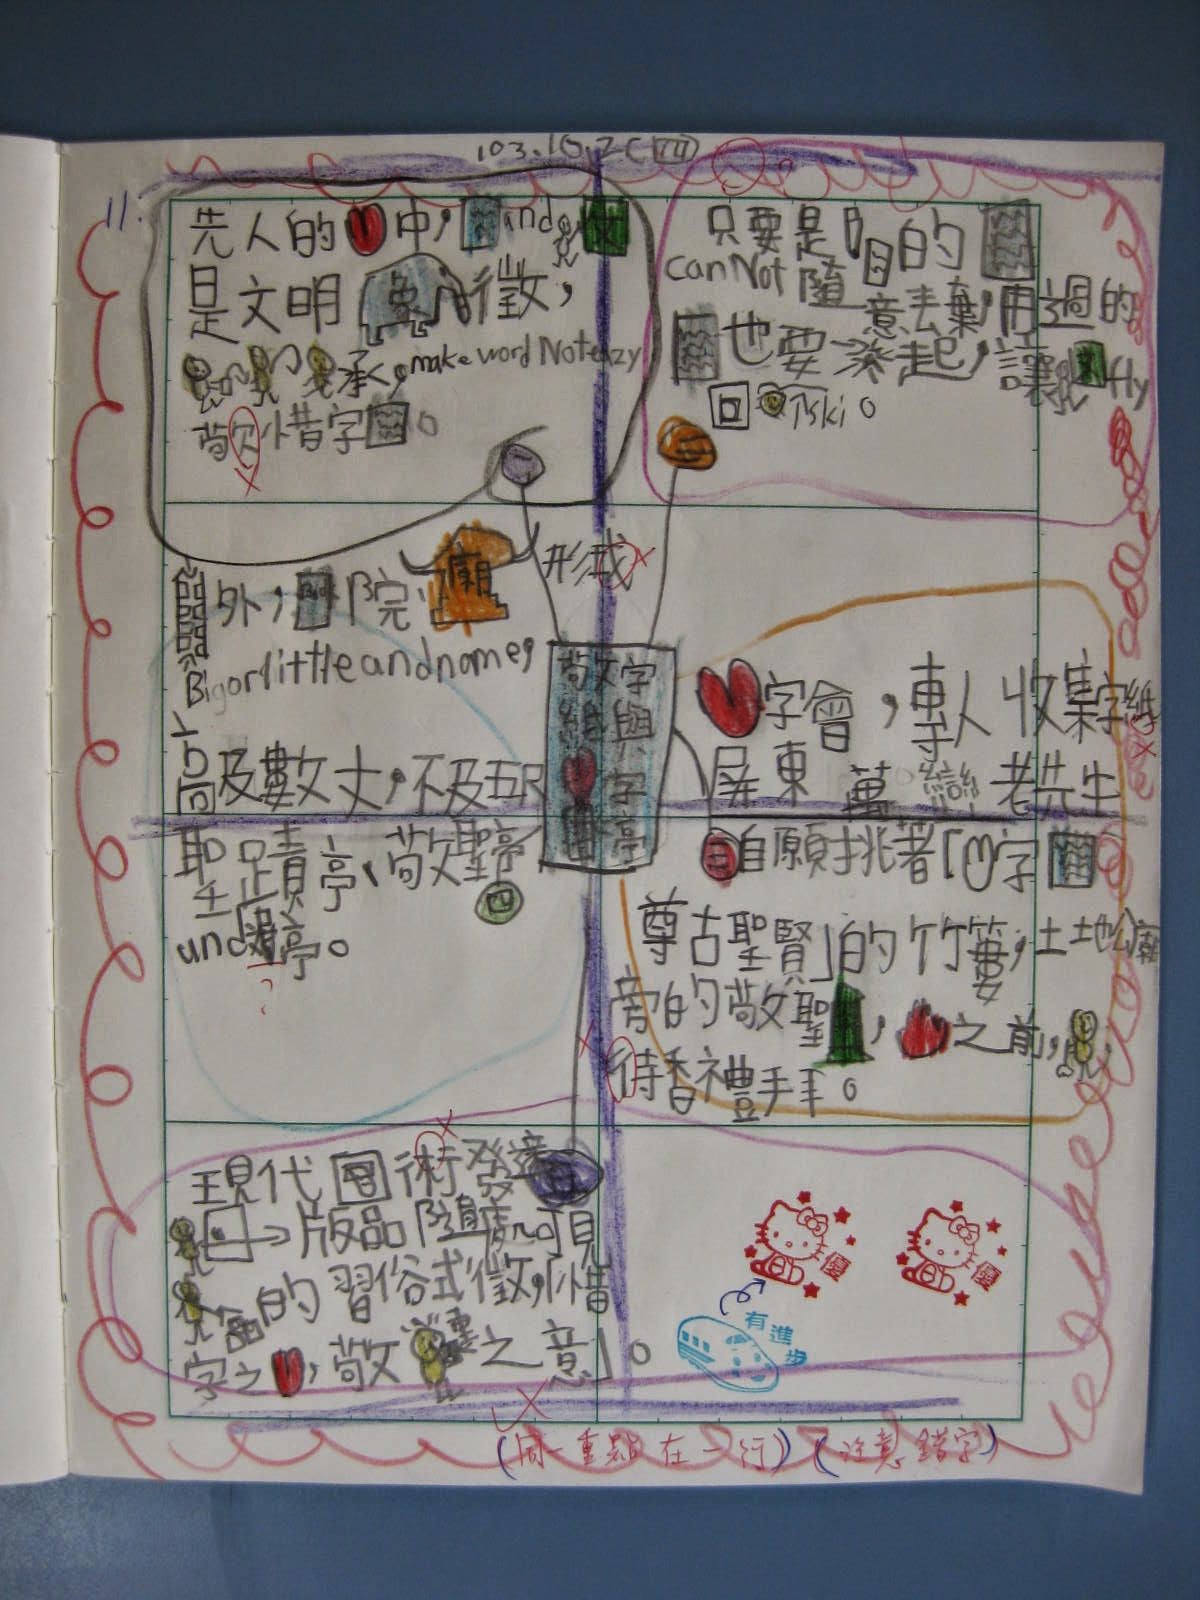 11.
先人的中,and
是文明象徵,
承,make word Not eazy
敬惜字。
只要是印的
can Not 隨意丟棄,用過的
也要來起,讓fly
回ski。
形式
敬文字
紙與
字
亭
外,院、廟
Big or little and name,
高及數丈,不及五尺
聖蹟亭、敬聖亭
and亭。
四
字會,專人收集字紙
屏東萬巒老先生
自願挑著「字
尊古聖賢」的竹簍,土地公廟
旁的敬聖,之前,
待香禮手。
三
現代圖術發達
版品隨處可見
的習俗式徵,「惜
字之,敬聖之意」。
優
優
有進步
(同一重點在一行)(注意錯字)